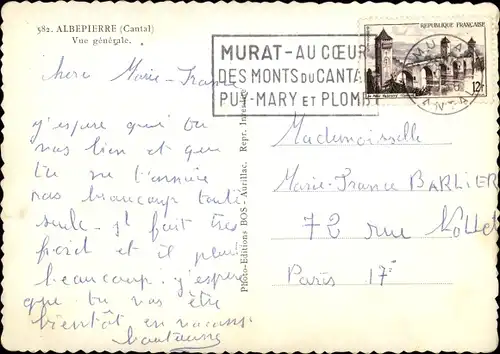 582. ALBEPIERRE (Cantal)
Vue générale.
MURAT - AU CŒUR
DES MONTS DU CANTA
PUY-MARY ET PLOMB
REPUBLIQUE FRANÇAISE
12f
MURAT
CANTAL
Photo-Editions BOS - Aurillac. Repr. Interdite
chere Marie-France
j'espere que tu
vas bien et que
tu ne t'ennuie
pas beaucoup toute
seule. Il fait très
froid et il pleut
beaucoup. j'espere
que tu vas être
bientôt en vacans
Mademoiselle
Marie-France BARLIER
72 rue Nollet
Paris 17e